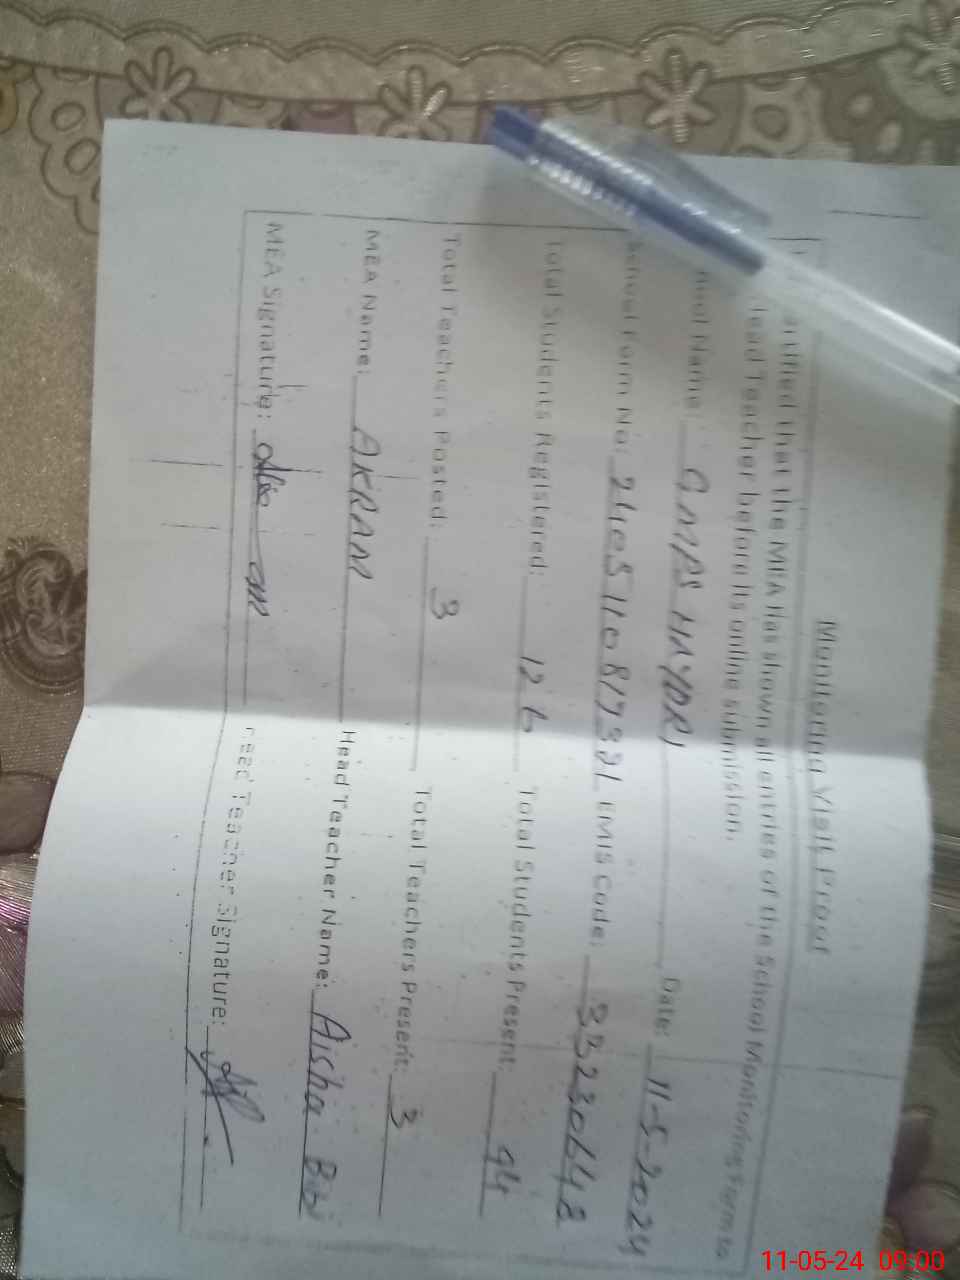 Monitoring Visit Proof
that the MEA Has shown all entries of the School Monitoring Form to
Head Teacher before its online submission.
Name: GMPS HAYDRI Date: 11-5-2024
School Form No: EMIS Code:
Total Students Registered: 126 Total Students Present: 94
Total Teachers Posted: 3 Total Teachers Present: 3
MEA Name: AKRAM Head Teacher Name: Aisha Bibi
MEA Signature: Head Teacher Signature:
11-05-24 09:00